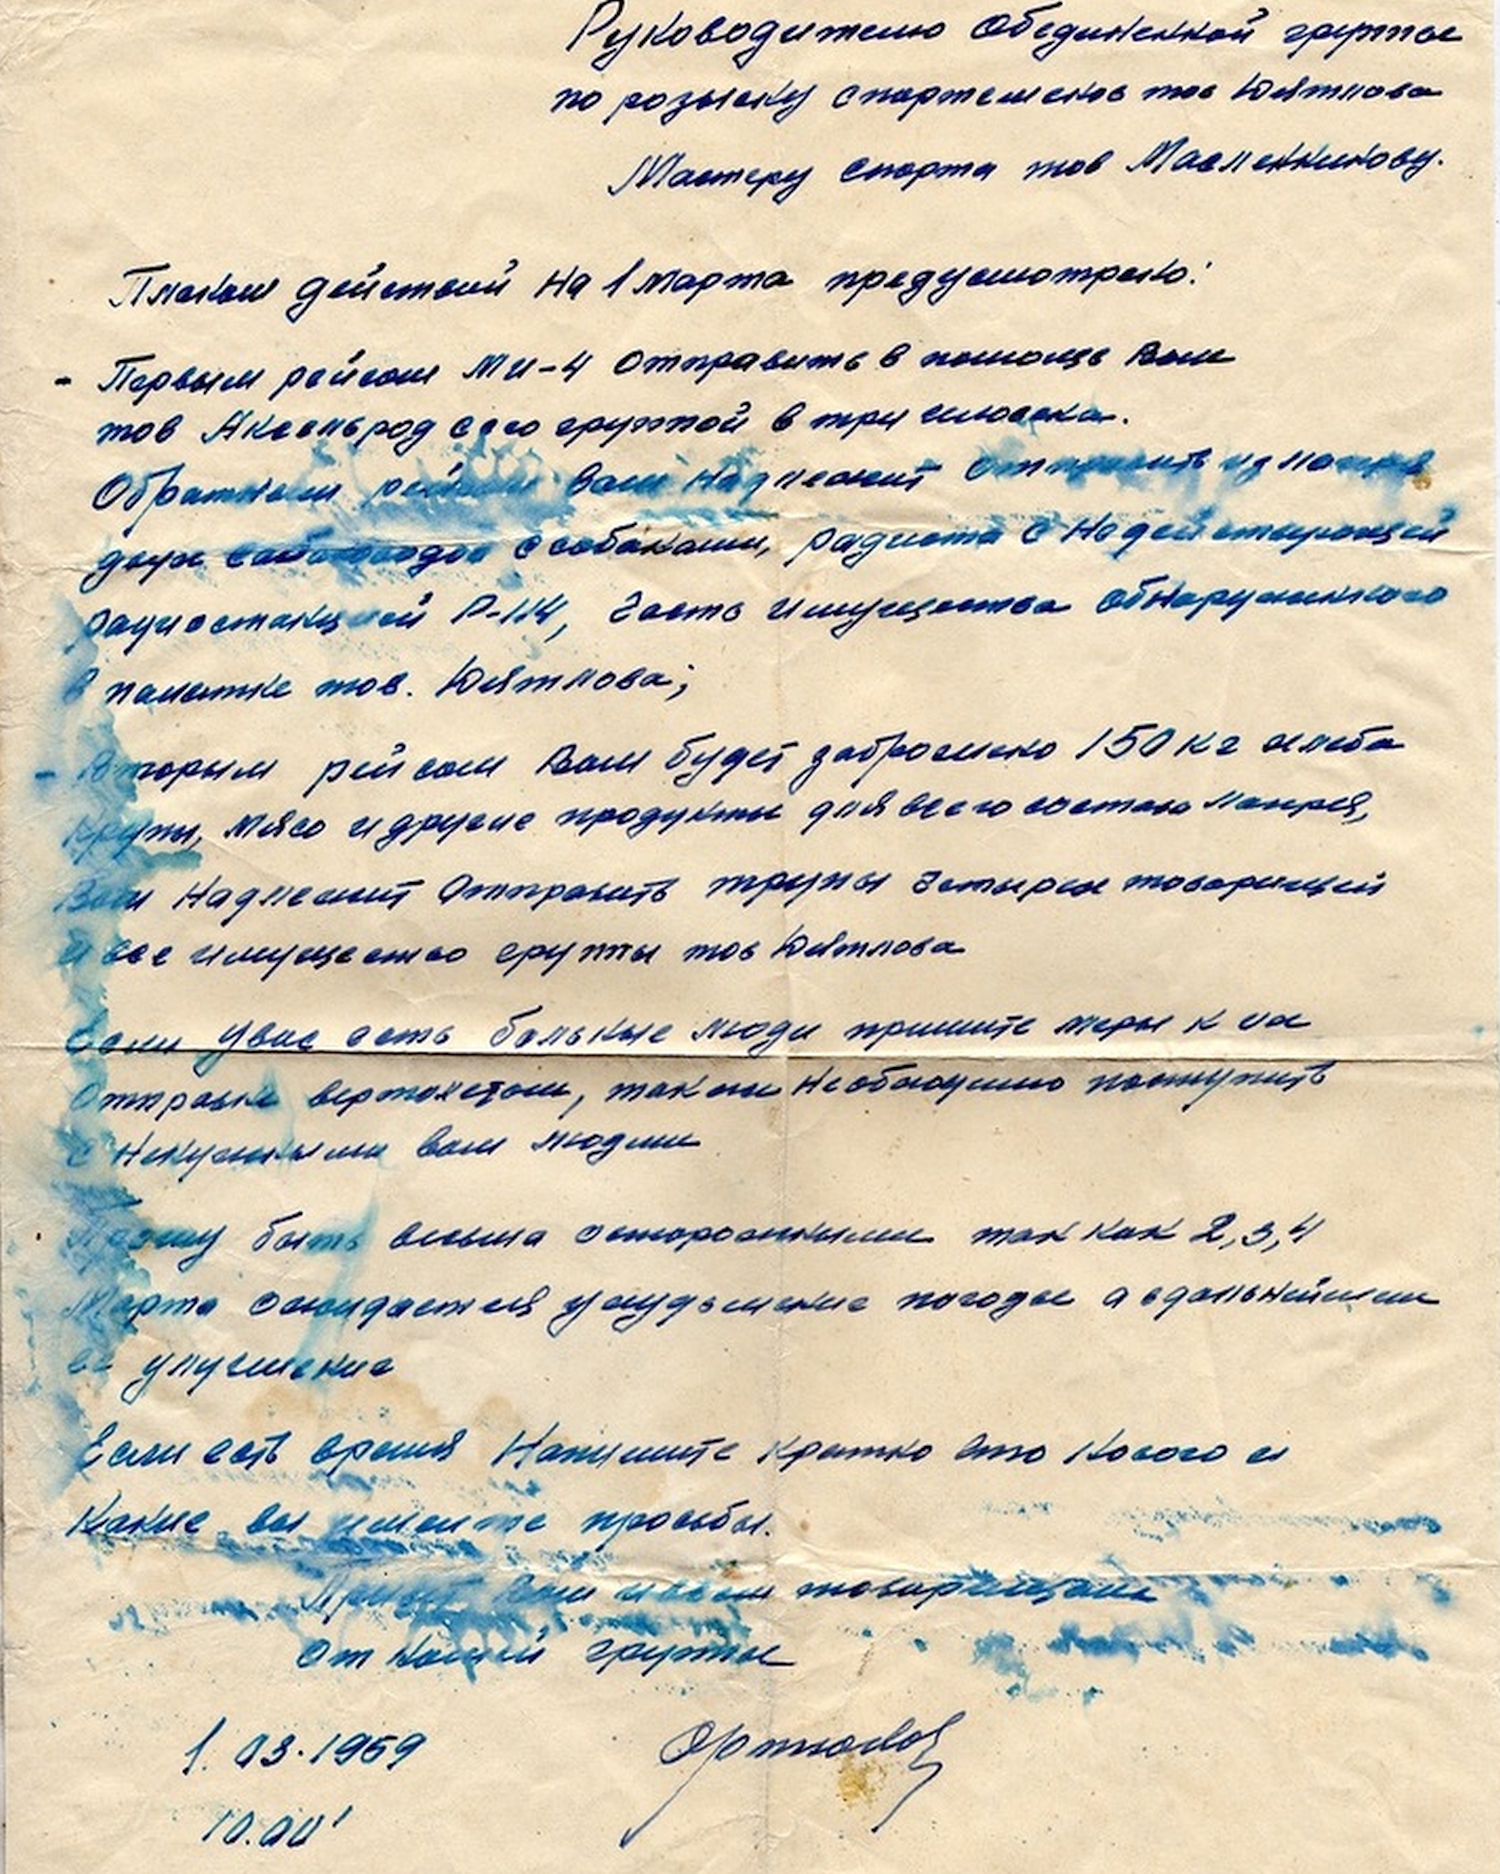 Руководителю Обединенной группы
по розыску спортсменов тов Дятлова
Мастеру спорта тов Масленникову.
Планом действий на 1 марта предусмотрено:
- Первым рейсом МИ-4 отправить в помощь Вам
тов Аксельрод с его группой в три человека.
Обратным рейсом Вам надлежит отправить из лагеря
двух собаководов с собаками, радиста с недействующей
радиостанцией Р-114, часть имущества обнаруженного
в палатке тов. Дятлова;
- Вторым рейсом Вам будет заброшено 150 кг хлеба
крупы, мясо и другие продукты для всего состава лагеря,
Вам надлежит отправить трупы четырех товарищей
и все имущество группы тов Дятлова
Если у вас есть больные люди примите меры к их
отправке вертолетом, также необходимо поступить
с ненужными вам людми
Прошу быть весьма осторожными так как 2,3,4
Марта ожидается ухудшение погоды а в дальнейшем
ее улучшение
Если есть время Напишите кратко что нового и
какие вы имеете просьбы.
Привет Вам и всем товарищам
от нашей группы
1.03.1959
10.00'
Ортюков